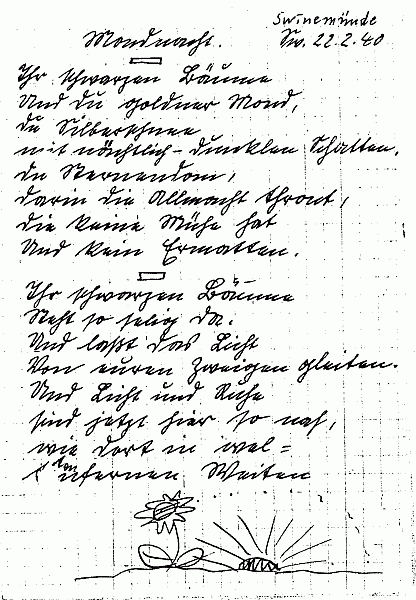 Swinemünde
Mondnacht. Sw. 22.2.40
Ihr schwarzen Bäume
Und du goldner Mond,
du Silberschnee
mit nächtlich-dunklen Schatten.
Du Sternendom,
darin die Allmacht thront,
die keine Mühe hat
Und kein Ermatten.
Ihr schwarzen Bäume
Steht so selig da.
Und laßt das Licht
Von euren Zweigen gleiten.
Und Licht und Ruhe
sind jetzt hier so nah,
wie dort in wel=
tenfernen Weiten